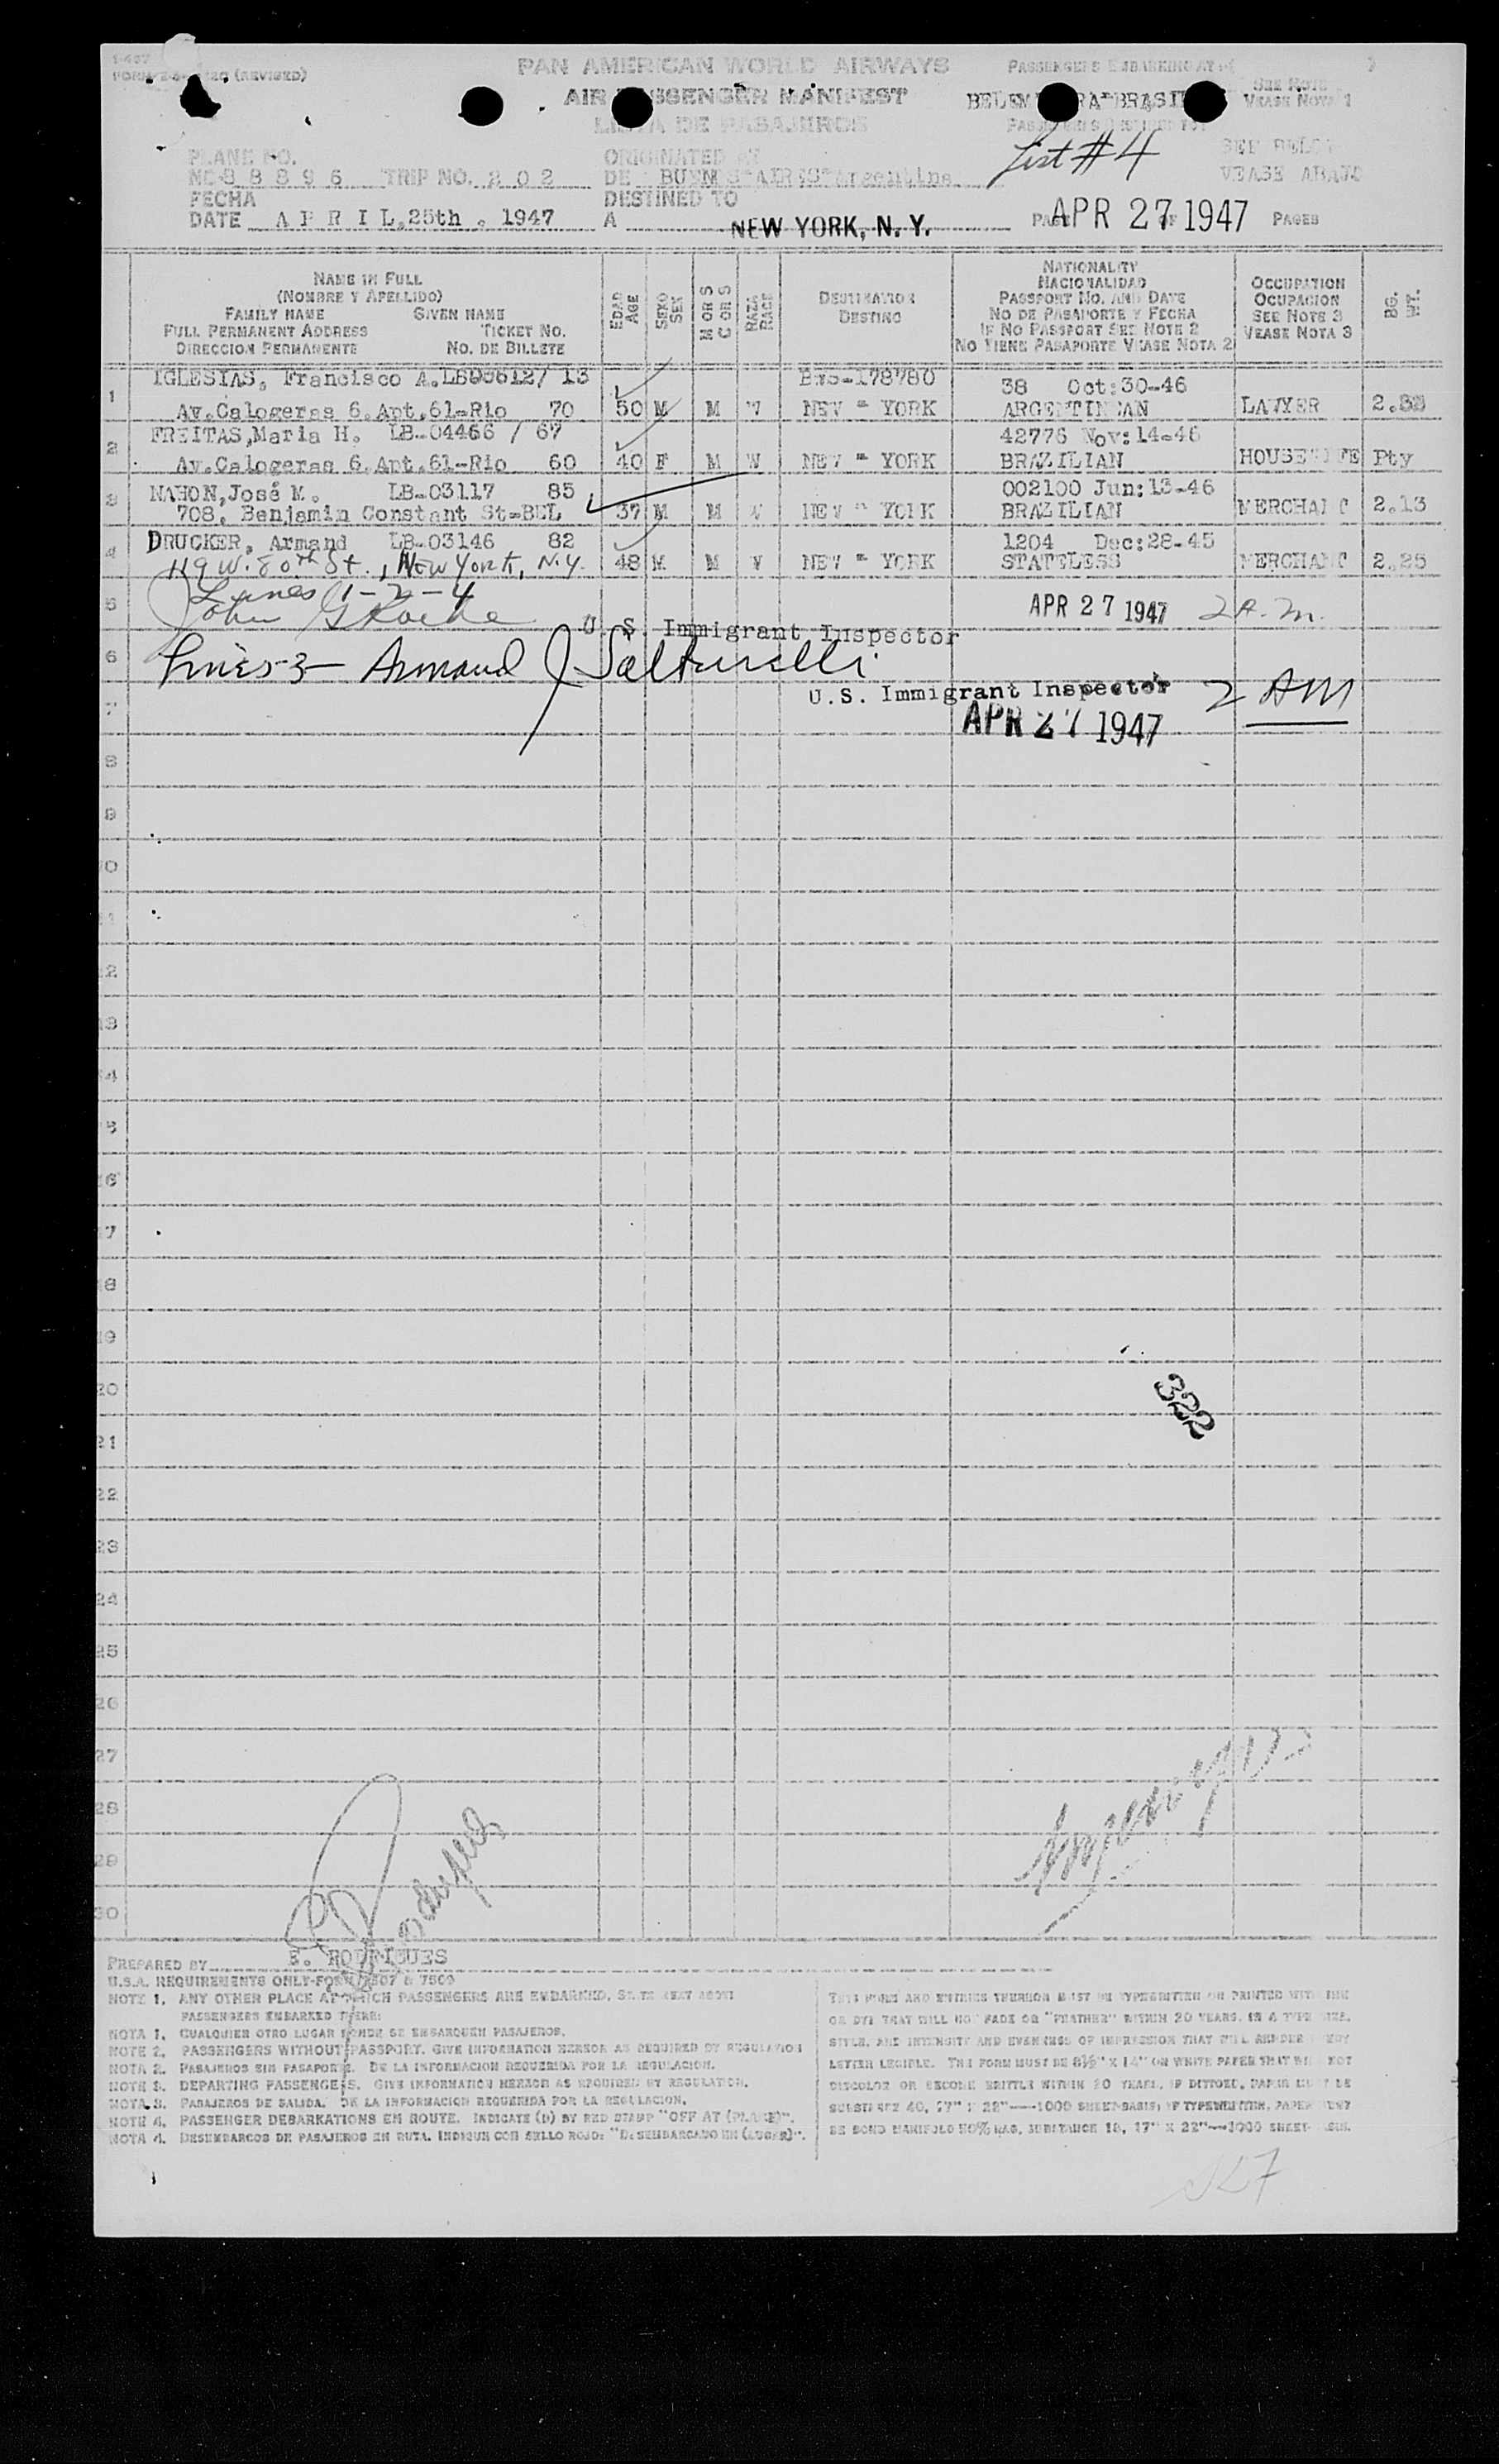 I-467
(REVISED)
PAN AMERICAN WORLD AIRWAYS
PASSENGERS EMBARKING AT
SEE NOTE
VEASE NOTA 1
AIR PASSENGER MANIFEST
LISTA DE PASAJEROS
List #4
SEE BELOW
VEASE ABAJO
PLANE NO.
NC-88896 TRIP NO. 202
ORIGINATED AT
DE BUENOS AIRES Argentina
FECHA
DATE APRIL, 25th. 1947
DESTINED TO
A NEW YORK, N. Y.
APR 27 1947 PAGES
NAME IN FULL
(NOMBRE Y APELLIDO)
FAMILY NAME GIVEN NAME
FULL PERMANENT ADDRESS TICKET NO.
DIRECCION PERMANENTE NO. DE BILLETE
EDAD
AGE
SEXO
SEX
M OR S
C OR S
RAZA
RACE
DESTINATION
DESTINO
NATIONALITY
NACIONALIDAD
PASSPORT NO. AND DATE
NO DE PASAPORTE Y FECHA
IF NO PASSPORT SEE NOTE 2
NO TIENE PASAPORTE VEASE NOTA 2
OCCUPATION
OCUPACION
SEE NOTE 3
VEASE NOTA 3
BG.
WT.
1 IGLESIAS, Francisco A. / 13 178780 38 Oct:30-46
Av.Calogeras 6.Apt.61-Rio 70 50 M M W NEW - YORK ARGENTINIAN LAWYER
2 FREITAS,Maria H. LB-04466 / 67 42776 Nov:14-46
Av.Calogeras 6.Apt.61-Rio 60 40 F M W NEW - YORK BRAZILIAN HOUSEWIFE Pty
3 NAHON,José M. LB-03117 85 002100 Jun:13-46
708, Benjamin Constant St-BEL 37 M M W NEW - YORK BRAZILIAN MERCHANT 2.13
4 DRUCKER, Armand LB-03146 82 1204 Dec:28-45
119 W. 80th St., New York, N.Y. 48 M M W NEW - YORK STATELESS MERCHANT 2.25
5 Lines 1-2-4
APR 27 1947 2 A.M.
U. S. Immigrant Inspector
6 Lines-3- Armand J Salturelli
U.S. Immigrant Inspector 2 AM
7 APR 27 1947
8
9
10
11
12
13
14
15
16
17
18
19
20
322
21
22
23
24
25
26
27
28
29
30
PREPARED BY E. RODRIGUES
U.S.A. REQUIREMENTS ONLY-FORM 7507 & 7509
NOTE 1. ANY OTHER PLACE AT WHICH PASSENGERS ARE EMBARKED,
PASSENGERS EMBARKED THERE:
NOTA 1. CUALQUIER OTRO LUGAR DONDE SE EMBARQUEN PASAJEROS.
NOTE 2. PASSENGERS WITHOUT PASSPORT. GIVE INFORMATION HEREON AS REQUIRED BY REGULATION
NOTA 2. PASAJEROS SIN PASAPORTE. DE LA INFORMACION REQUERIDA POR LA REGULACION.
NOTE 3. DEPARTING PASSENGERS. GIVE INFORMATION HEREON AS REQUIRED BY REGULATION.
NOTA 3. PASAJEROS DE SALIDA. DE LA INFORMACION REQUERIDA POR LA REGULACION.
NOTE 4. PASSENGER DEBARKATIONS EN ROUTE. INDICATE (D) BY RED STAMP "OFF AT (PLACE)".
NOTA 4. DESEMBARCOS DE PASAJEROS EN RUTA. INDIQUE CON SELLO ROJO: "DESEMBARCADO EN (LUGAR)".
THIS FORM AND ENTRIES THEREON MUST BE TYPEWRITTEN OR PRINTED WITH INK
OR DYE THAT WILL NOT FADE OR "FEATHER" WITHIN 20 YEARS, IN A TYPE SIZE,
STYLE, AND INTENSITY AND EVENNESS OF IMPRESSION THAT WILL RENDER EVERY
LETTER LEGIBLE. THE FORM MUST BE 8½" X 14" ON WHITE PAPER THAT WILL NOT
DISCOLOR OR BECOME BRITTLE WITHIN 20 YEARS. IF DITTOED, PAPER MUST BE
SUBSTANCE 40, 17" X 22"—1000 SHEET BASIS; IF TYPEWRITTEN, PAPER MUST
BE BOND MANIFOLD 50% RAG, SUBSTANCE 18, 17" X 22"—1000 SHEET